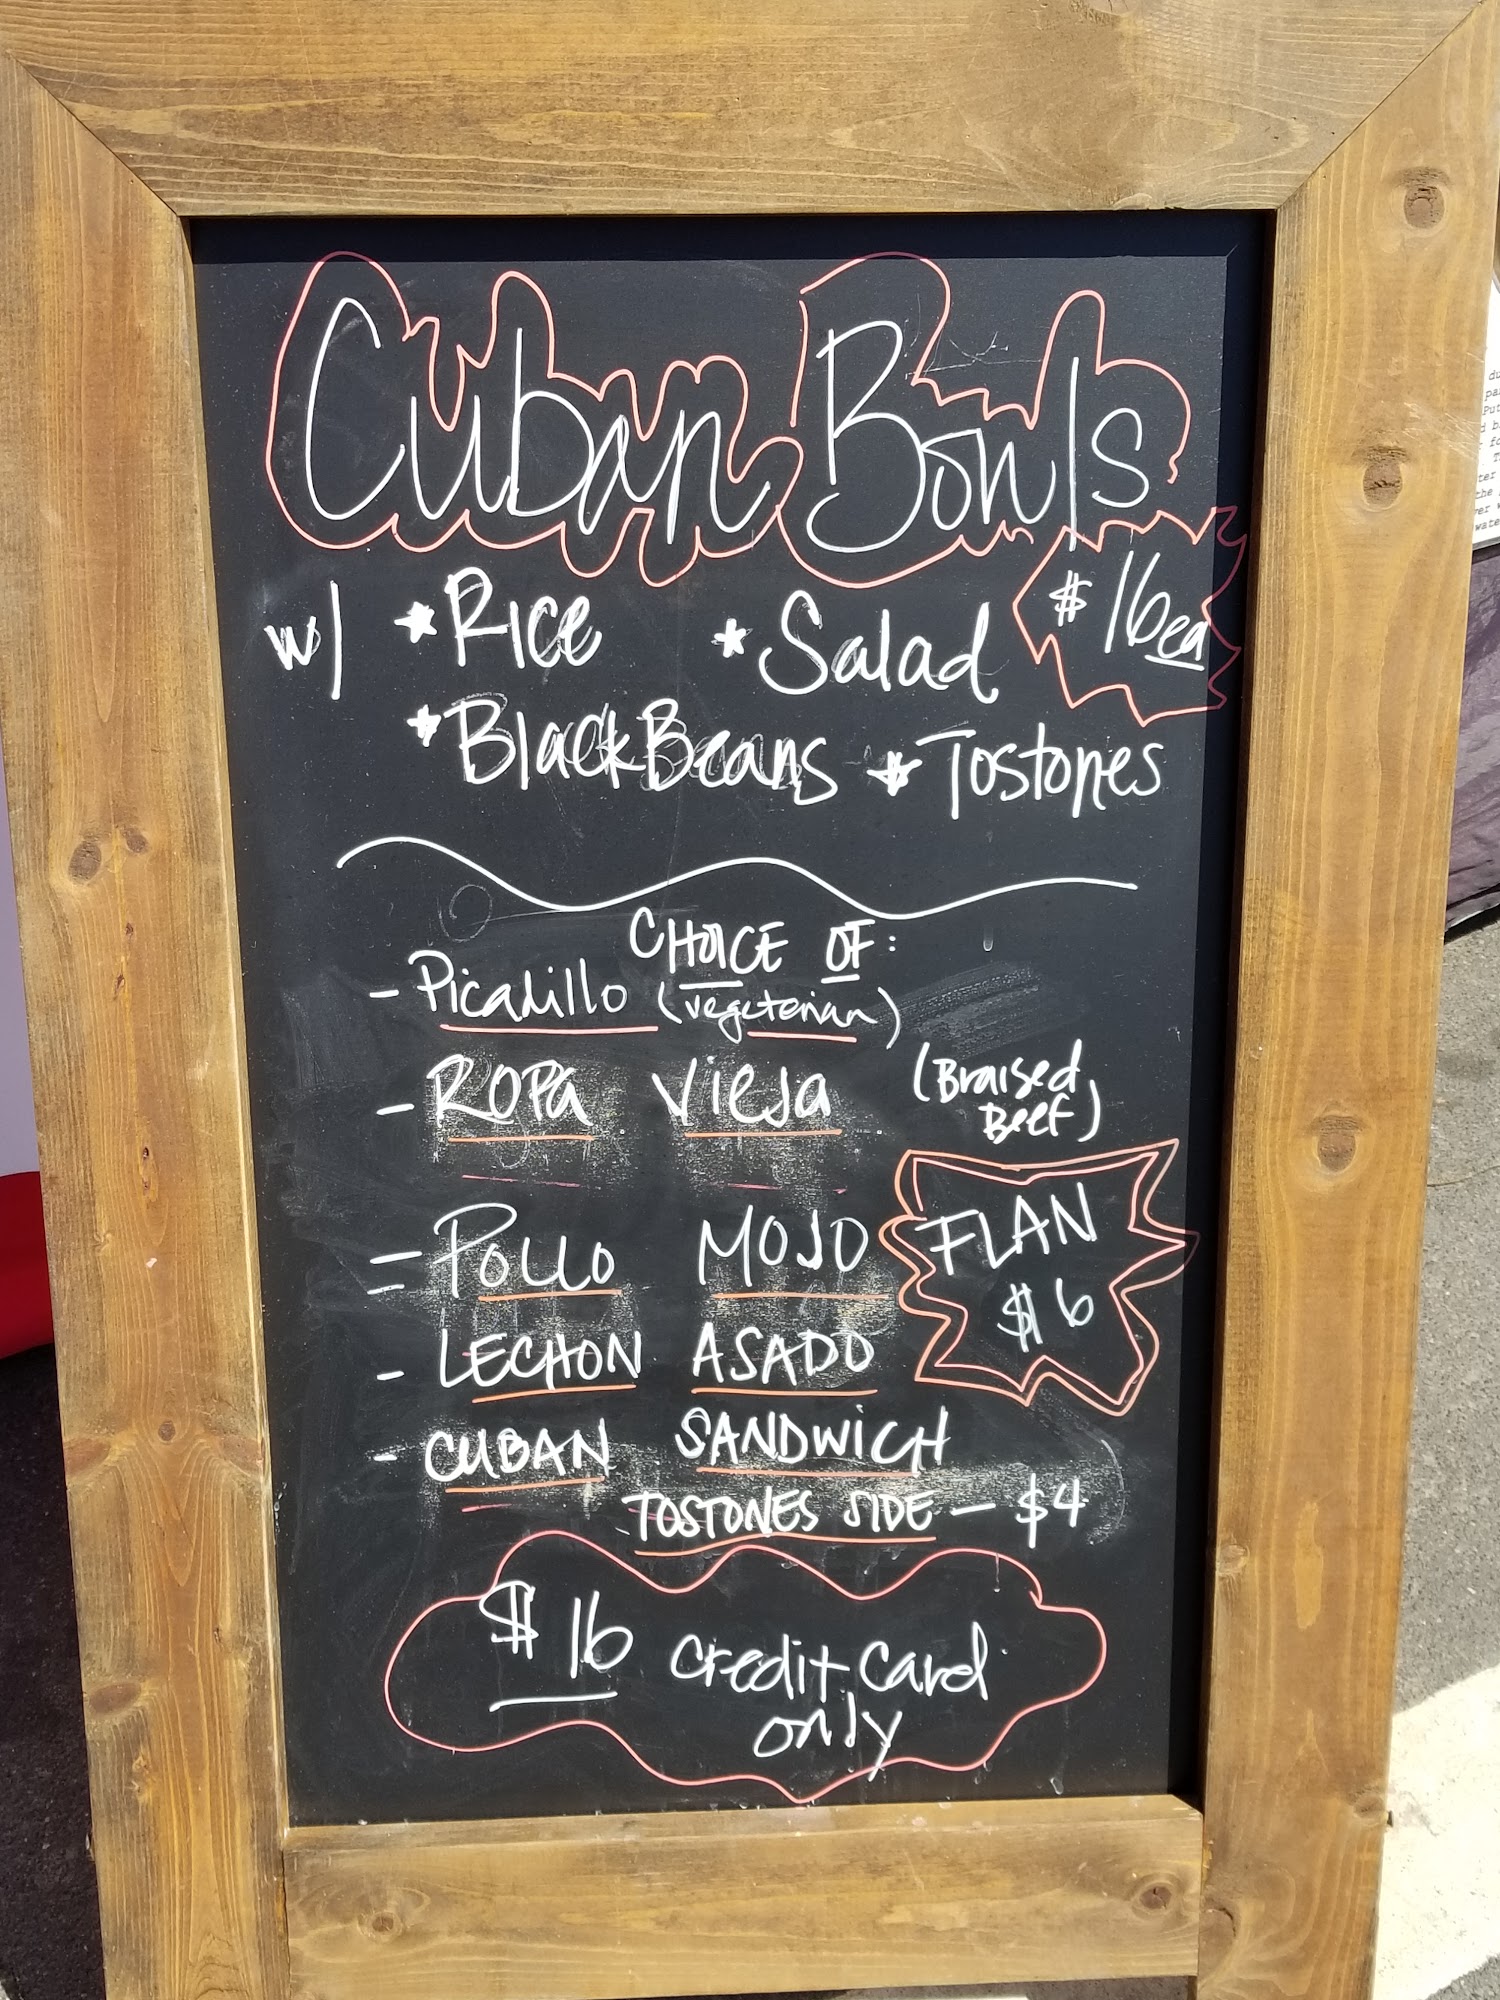 Cuban Bowls
$16ea
w/ * Rice * Salad
* Black Beans * Tostones
CHOICE OF:
- Picadillo (vegeterian)
- ROPA VIEJA (Braised Beef)
= POLLO MOJO
FLAN
$6
- LECHON ASADO
- CUBAN SANDWICH
TOSTONES SIDE - $4
$16 credit card
only